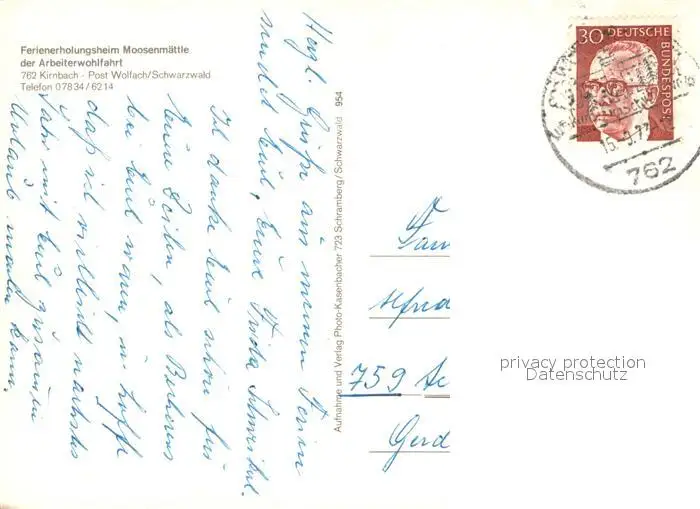 Ferienerholungsheim Moosenmättle
der Arbeiterwohlfahrt
762 Kirnbach - Post Wolfach/Schwarzwald
Telefon 07834/6214
Herzl. Grüße aus meinen Ferien
sendet Euch, Eure Frida
Ich danke Euch schon für
Eure Zeilen, als
bei Euch waren, u. hoffe
daß ich vielleicht nächstes
Jahr mit Euch zusamen
Urlaub machen kann.
Aufnahme und Verlag Photo-Kasenbacher 723 Schramberg/Schwarzwald 954
30 DEUTSCHE
BUNDESPOST
762
Fam
Alfred
759
Gerd
privacy protection
Datenschutz